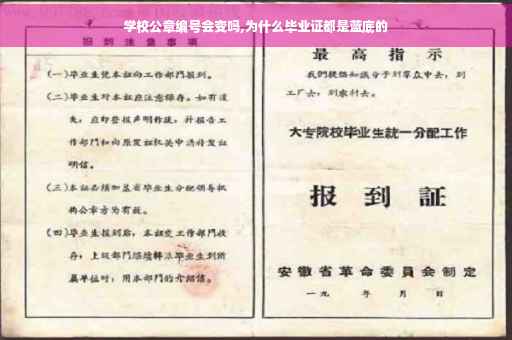 学校公章编号会变吗,为什么毕业证都是蓝底的
报到注意事项
(一)毕业生凭本证向工作部门报到。
(二)毕业生对本证应注意保存。如有遗
失,应即登报声明作废,并报告工
作部门和向原发证机关申请补发证
明信。
(三)本证必须加盖省毕业生分配领导机
构公章方为有效。
(四)毕业生报到后,本证交工作部门收
存,上级部门继续转派毕业生到所
属单位时,用本部门的介绍信。
最高指示
我们提倡知识分子到群众中去,到
工厂去,到农村去。
大专院校毕业生統一分配工作
报到証
安徽省革命委員会制定
一九 年 月 日